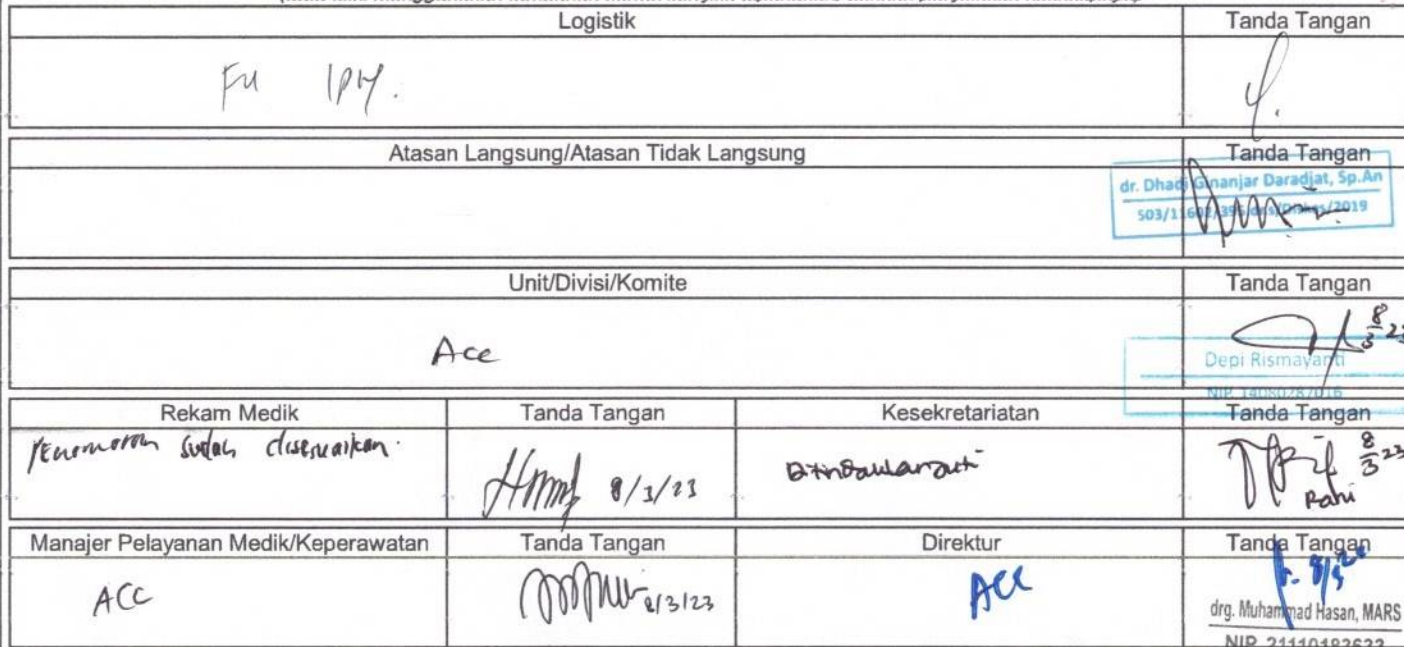 Logistik
Tanda Tangan
FU IPM.
Atasan Langsung/Atasan Tidak Langsung
Tanda Tangan
dr. Dhadi Ginanjar Daradjat, Sp.An
Unit/Divisi/Komite
Tanda Tangan
Acc
8/3 23
Depi Rismayanti
NIP. 14080287016
Rekam Medik
Tanda Tangan
Kesekretariatan
Tanda Tangan
Penomoran sudah disesuaikan.
8/3/23
Ditindaklanjuti
8/3 23
Rani
Manajer Pelayanan Medik/Keperawatan
Tanda Tangan
Direktur
Tanda Tangan
ACC
8/3/23
ACC
drg. Muhammad Hasan, MARS
NIP. 21110183633